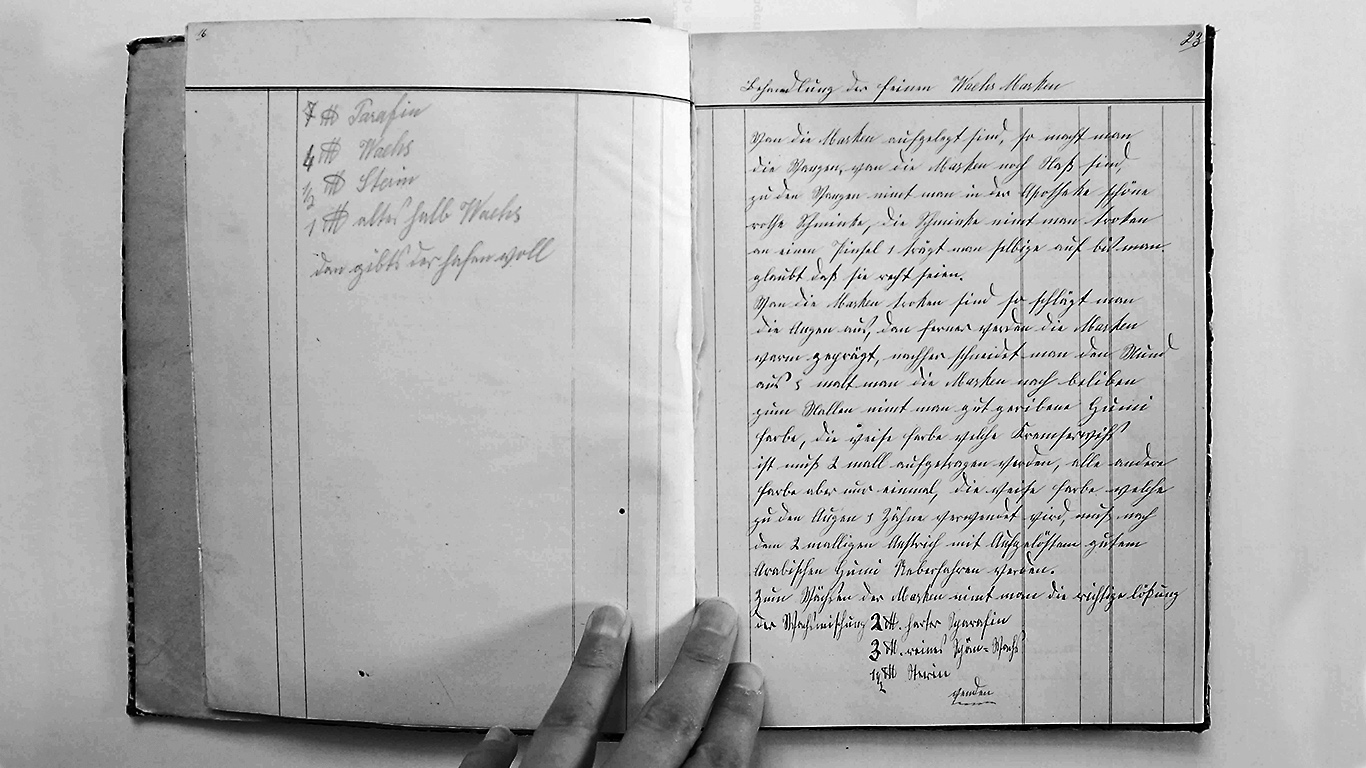 16
7 ℔ Parafin
4 ℔ Wachs
1/2 ℔ Sterin
1 ℔ altes halb Wachs
dan gibts der hafen voll
23
Behandlung der feinen Wachs Masken
Wan die Masken aufgelegt sind, so macht man
die Wangen, wan die Masken noch Naß sind,
zu den Wangen nimt man in der Apotheke schöne
rothe Schminke, die Schminke nimt man troken
an einen Pinsel & trägt man selbige auf bis man
glaubt daß sie recht seien.
Wan die Masken troken sind so schlägt man
die Augen aus, dan ferner werden die Masken
warm geprägt, nachher schneidet man den Mund
aus & malt man die Masken nach beliben
zum Mallen nimt man gut geribene Gumi
farbe, die weise farbe welche Kremserweiß
ist muß 2 mall aufgetragen werden, alle andere
farbe aber nur einmal, die weise farbe welche
zu den Augen & Zähne verwendet wird, muß nach
dem 2 malligen Anstrich mit Aufgelöstem gutem
Arabischen Gumi Ueberfahren werden.
Zum Wächsen der Masken nimt man die richtige lößung
der Wachsmischung 2 ℔. harter Parafin
3 ℔. reines Wachs
1/2 ℔ Sterin
wenden